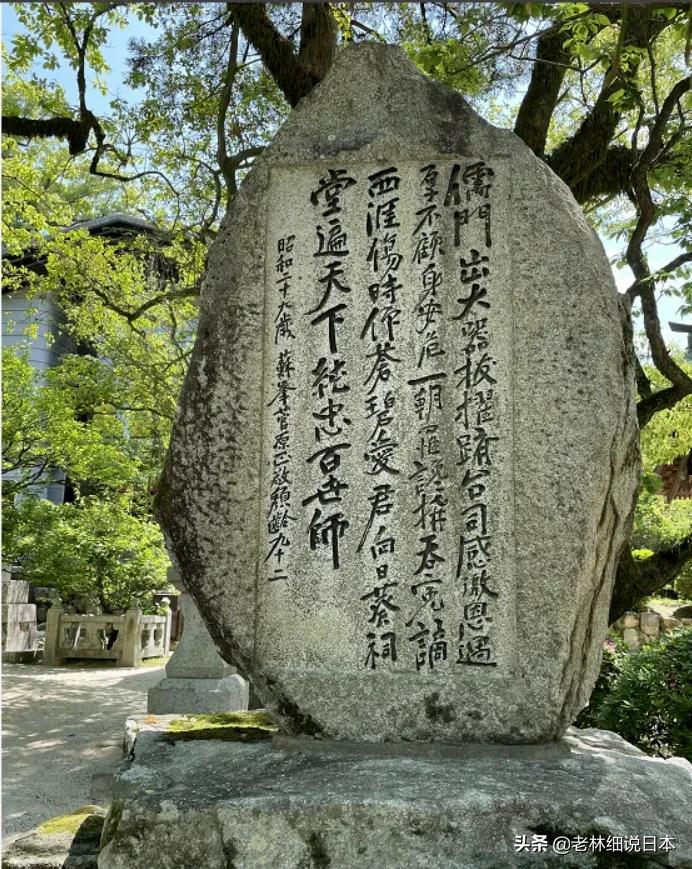 儒門出大器拔擢躋台司感激恩遇
厚不顧身安危一朝罹讒構吞冤謫
西涯傷時仰蒼碧愛君向日葵祠
堂遍天下純忠百世師
昭和二十九歳 蘇峯菅原正敬 齢九十二
头条 @老林细说日本